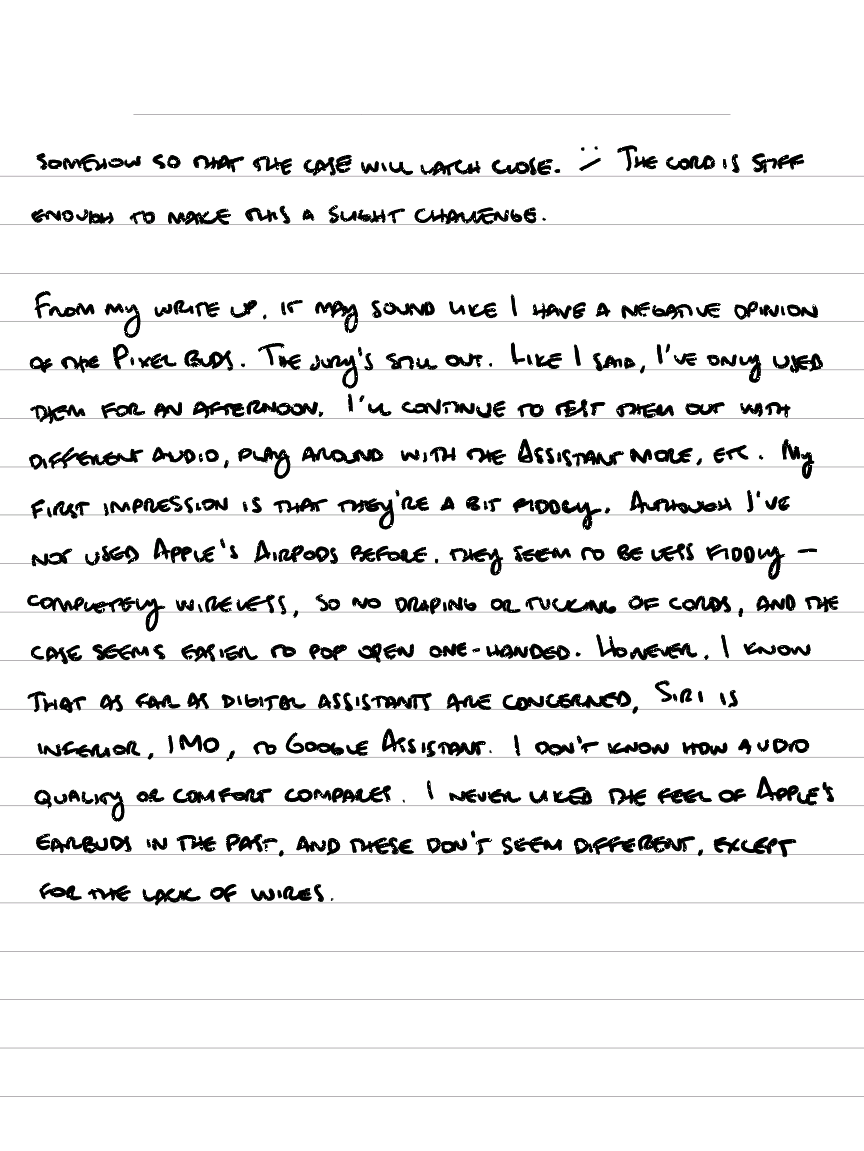 SOMEHOW SO THAT THE CASE WILL LATCH CLOSE. :/ THE CORD IS STIFF
ENOUGH TO MAKE THIS A SLIGHT CHALLENGE.
FROM MY WRITE UP, IT MAY SOUND LIKE I HAVE A NEGATIVE OPINION
OF THE PIXEL BUDS. THE JURY'S STILL OUT. LIKE I SAID, I'VE ONLY USED
THEM FOR AN AFTERNOON. I'LL CONTINUE TO TEST THEM OUT WITH
DIFFERENT AUDIO, PLAY AROUND WITH THE ASSISTANT MORE, ETC. MY
FIRST IMPRESSION IS THAT THEY'RE A BIT FIDDLY. ALTHOUGH I'VE
NOT USED APPLE'S AIRPODS BEFORE, THEY SEEM TO BE LESS FIDDLY —
COMPLETELY WIRELESS, SO NO DRAPING OR TUCKING OF CORDS, AND THE
CASE SEEMS EASIER TO POP OPEN ONE-HANDED. HOWEVER, I KNOW
THAT AS FAR AS DIGITAL ASSISTANTS ARE CONCERNED, SIRI IS
INFERIOR, IMO, TO GOOGLE ASSISTANT. I DON'T KNOW HOW AUDIO
QUALITY OR COMFORT COMPARES. I NEVER LIKED THE FEEL OF APPLE'S
EARBUDS IN THE PAST, AND THESE DON'T SEEM DIFFERENT, EXCEPT
FOR THE LACK OF WIRES.